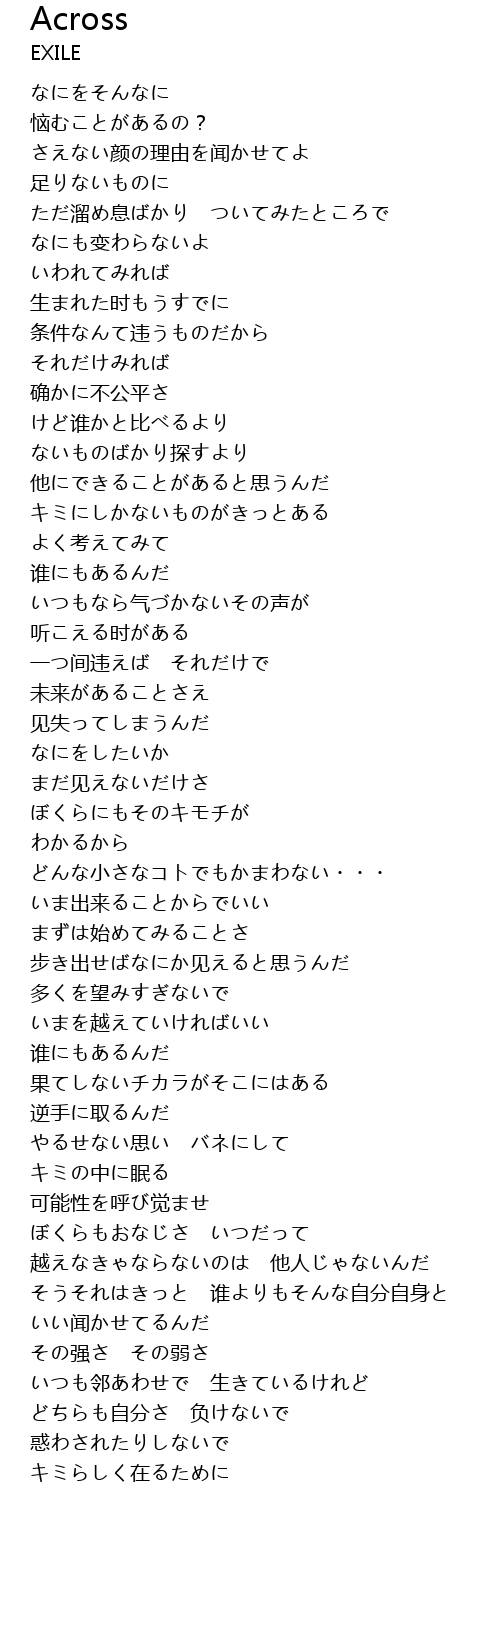 Across
EXILE
なにをそんなに
悩むことがあるの？
さえない颜の理由を闻かせてよ
足りないものに
ただ溜め息ばかり　ついてみたところで
なにも变わらないよ
いわれてみれば
生まれた时もうすでに
条件なんて违うものだから
それだけみれば
确かに不公平さ
けど谁かと比べるより
ないものばかり探すより
他にできることがあると思うんだ
キミにしかないものがきっとある
よく考えてみて
谁にもあるんだ
いつもなら气づかないその声が
听こえる时がある
一つ间违えば　それだけで
未来があることさえ
见失ってしまうんだ
なにをしたいか
まだ见えないだけさ
ぼくらにもそのキモチが
わかるから
どんな小さなコトでもかまわない・・・
いま出来ることからでいい
まずは始めてみることさ
步き出せばなにか见えると思うんだ
多くを望みすぎないで
いまを越えていければいい
谁にもあるんだ
果てしないチカラがそこにはある
逆手に取るんだ
やるせない思い　バネにして
キミの中に眠る
可能性を呼び觉ませ
ぼくらもおなじさ　いつだって
越えなきゃならないのは　他人じゃないんだ
そうそれはきっと　谁よりもそんな自分自身と
いい闻かせてるんだ
その强さ　その弱さ
いつも邻あわせで　生きているけれど
どちらも自分さ　负けないで
惑わされたりしないで
キミらしく在るために